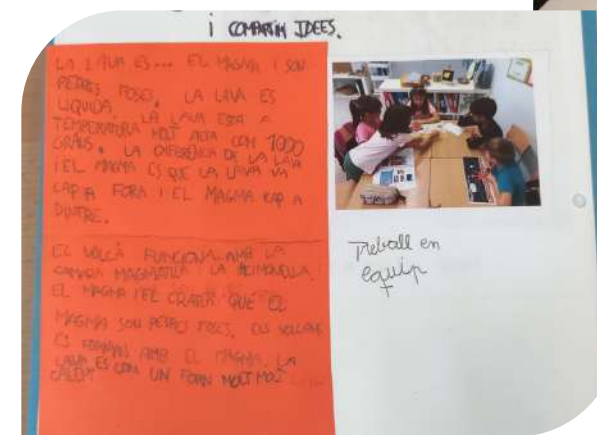 i COMPARTIM IDEES.
LA LAVA ES... EL MAGMA I SON
PEDRES FOSES. LA LAVA ES
LIQUIDA. LA LAVA ESTA A
TEMPERATURA MOLT ALTA COM 1000
GRAUS. LA DIFERENCIA DE LA LAVA
I EL MAGMA ES QUE LA LAVA VA
CAP A FORA I EL MAGMA KAP A
DINTRE.
EL VOLCÀ FUNCIONA AMB LA
CAMBRA MAGMATICA LA XIMONELLA
EL MAGMA I EL CRATER QUE EL
MAGMA SON PEDRES FOSES. ELS VOLCANS
ES FORMAN AMB EL MAGMA. LA
LAVA ES COM UN FORN MOLT MOLT
CALENT
Treball en
equip